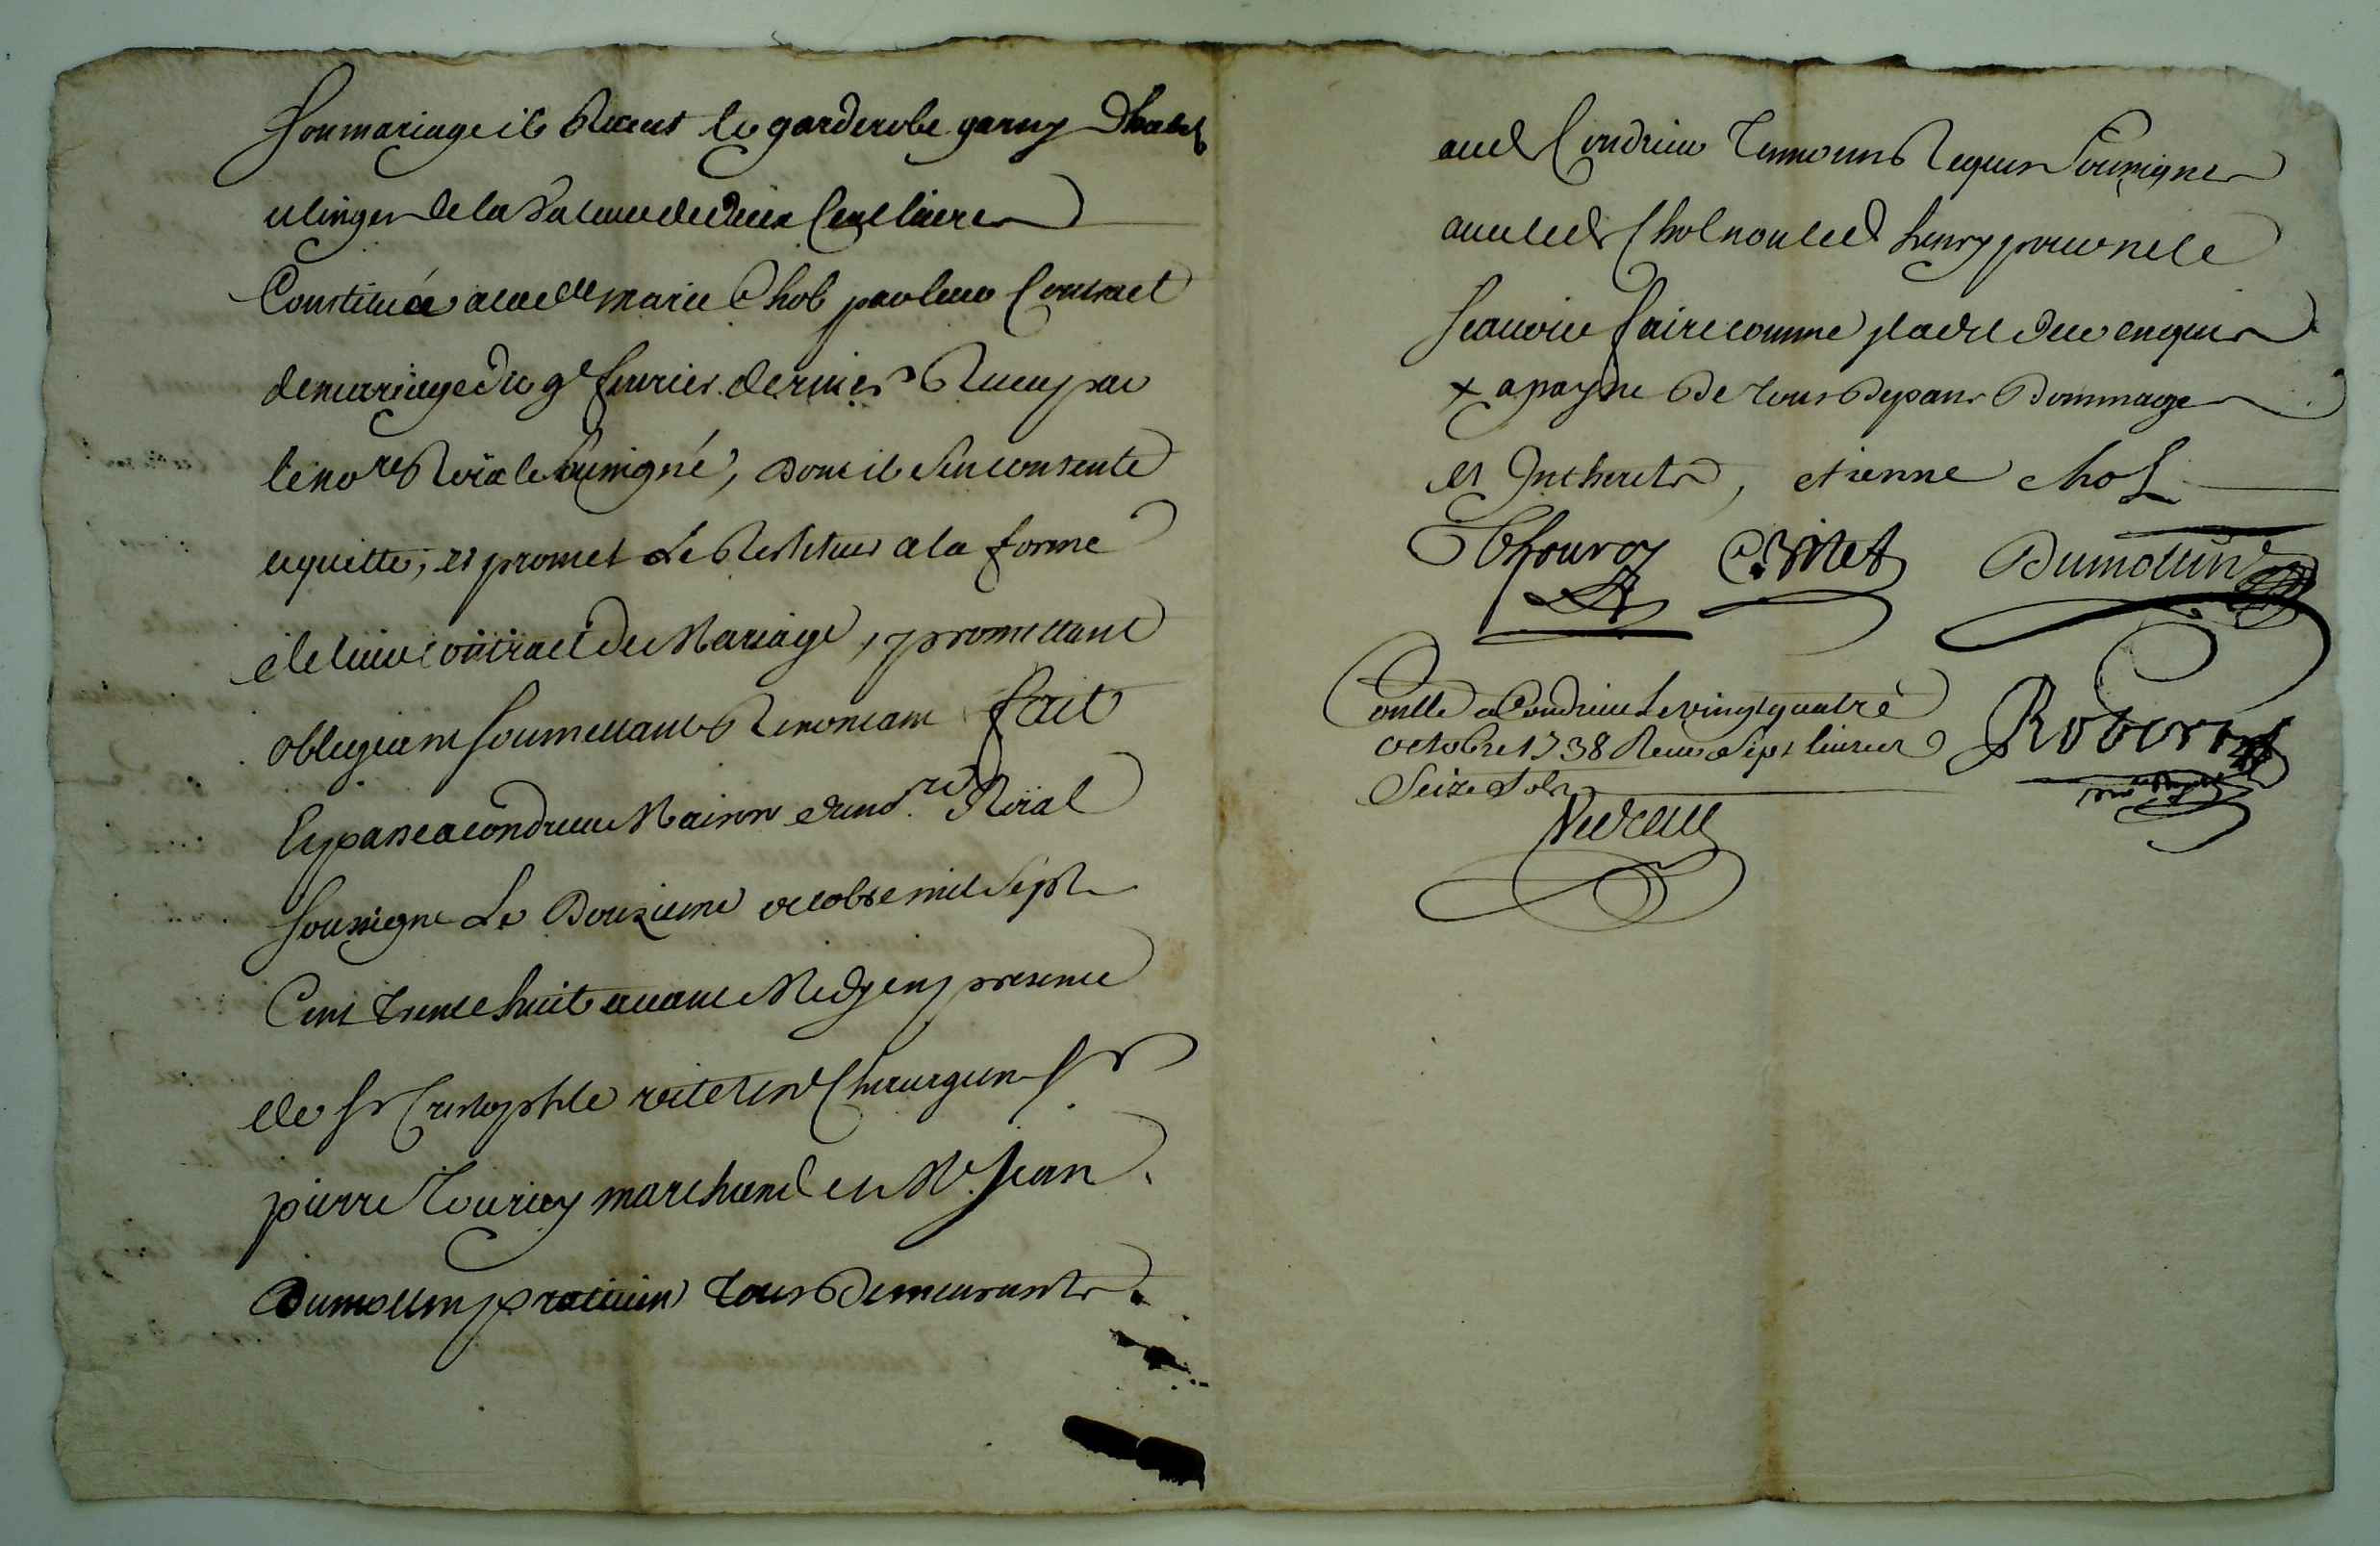 son mariage il Receut le garderobe garny Dhabits
et linges de la Valeur de deux Cent livres
Constitué a lad.lle marie Chol par leur Contract
de mariage du 9e fevrier dernier Receu par
le no.re Roial Soussigné, dont il sen contente
et quitte, et promet de Restituer a la forme
de leur contract de Mariage, promettant
obligeant soumettant Renoncant fait
et passe a condrieu Maison du no.re Roial
soussigne Le Douzieme octobre mil Sept
Cent trente huit avant Midy en presence
de sr Cristophle Chirurgien sr
pierre marchand et Me Jean
Dumollin praticien tous Demeurants
aud Condrieu Temoins Requis Soussignes
avec led Chol non led henry pour ne le
scavoir faire comme il a dit de ce enquis
x a payne De tous Depans Dommages
et Intherets, etienne chol
C. Vitet Dumollin
Conllé a Condrieu Le vingt quatre
octobre 1738 Receu Sept livres
Seize Sols
Robert